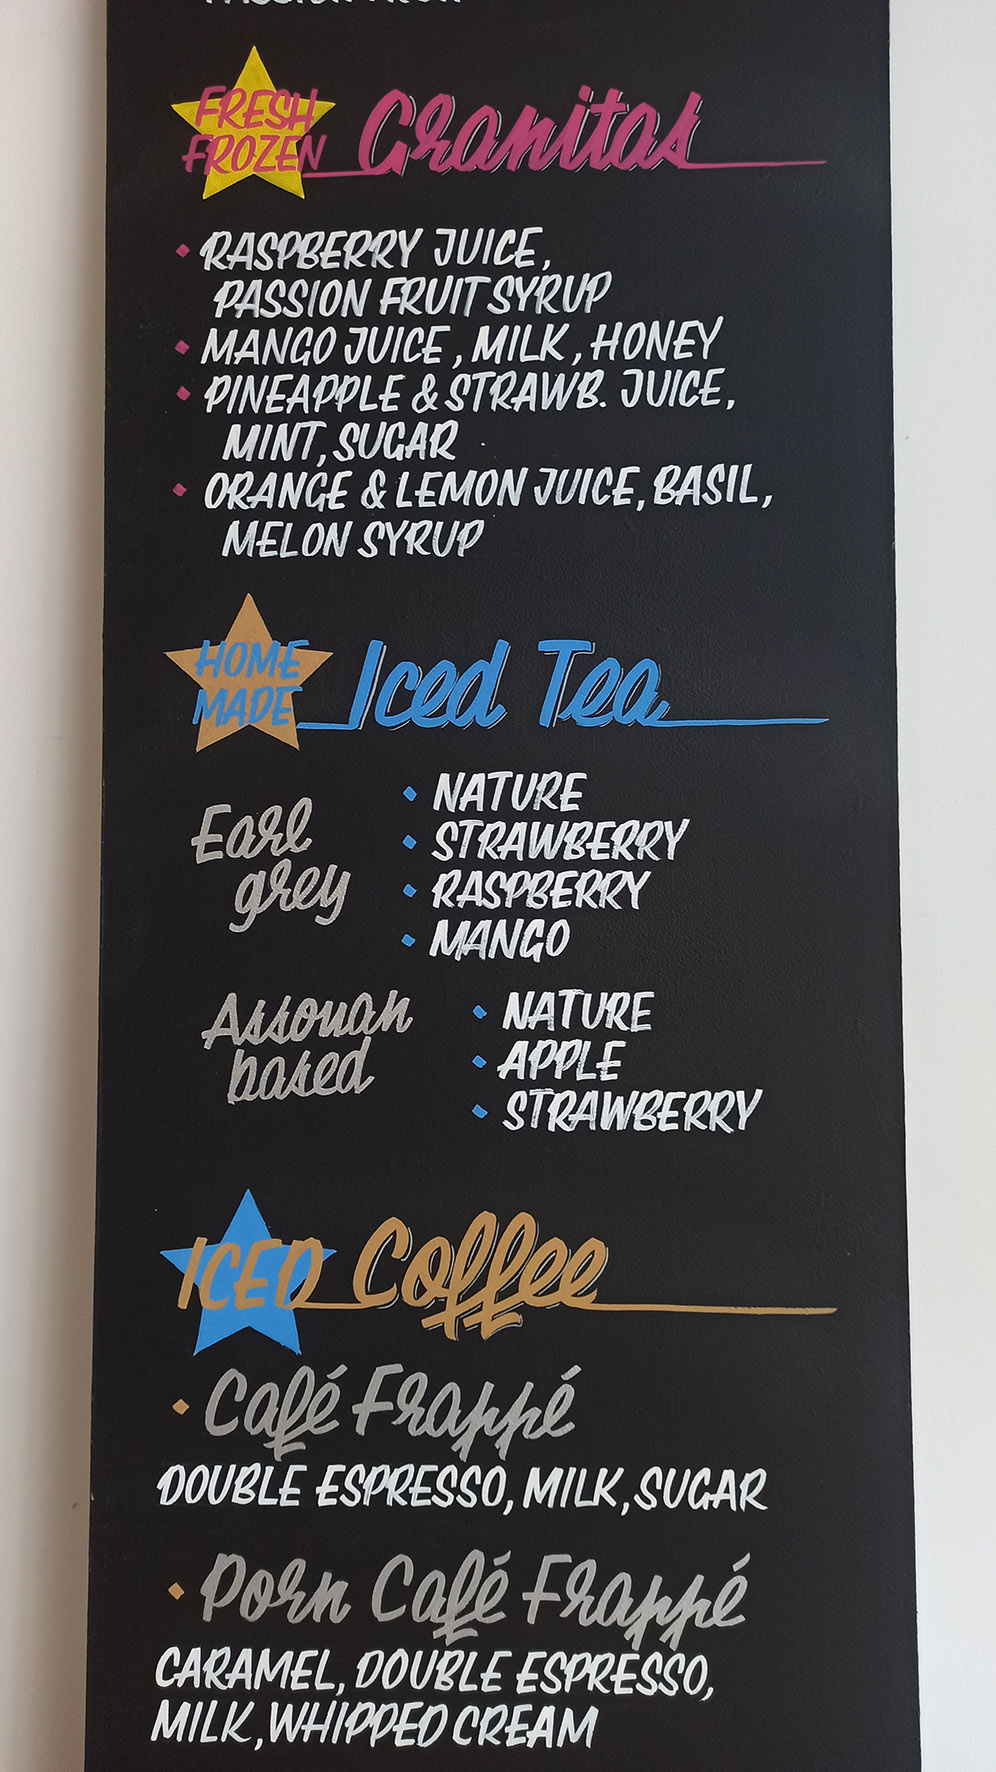 FRESH
FROZEN Granitas
RASPBERRY JUICE,
PASSION FRUIT SYRUP
MANGO JUICE, MILK, HONEY
PINEAPPLE & STRAWB. JUICE,
MINT, SUGAR
ORANGE & LEMON JUICE, BASIL,
MELON SYRUP
HOME
MADE Iced Tea
Earl
grey
NATURE
STRAWBERRY
RASPBERRY
MANGO
Assouan
based
NATURE
APPLE
STRAWBERRY
ICED Coffee
Café Frappé
DOUBLE ESPRESSO, MILK, SUGAR
Porn Café Frappé
CARAMEL, DOUBLE ESPRESSO,
MILK, WHIPPED CREAM